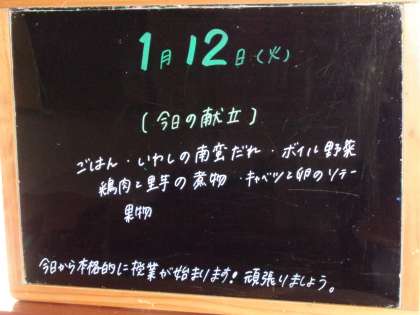 1月12日(火)
(今日の献立)
ごはん・いわしの南蛮だれ・ボイル野菜
鶏肉と里芋の煮物・キャベツと卵のソテー
果物
今日から本格的に授業が始まります!頑張りましょう。